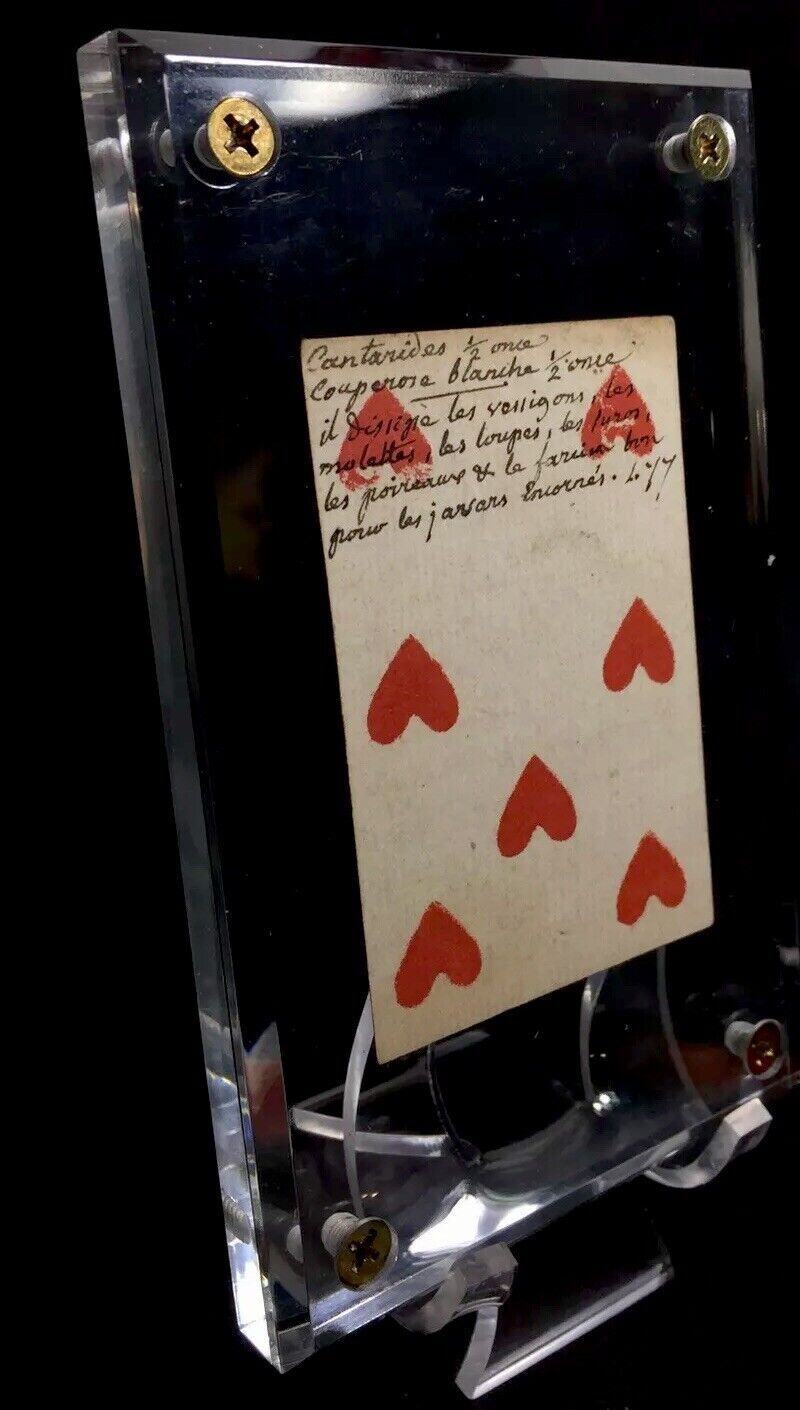 Cantarides ½ once
Couperose blanche ½ once
il dissipe les vessigons, les
molettes, les loupes, les suros,
les poireaux & le farcin bon
pour les javars Encornés.